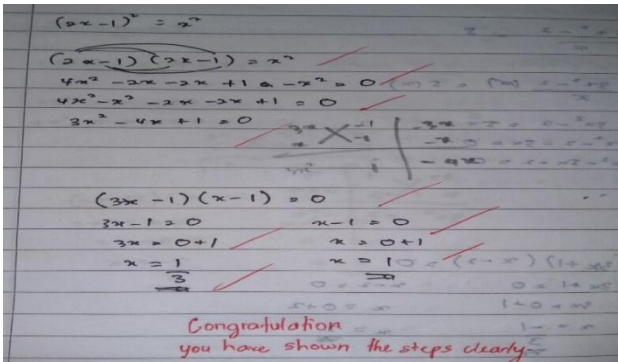 (2x-1)² = x²
(2x-1) (2x-1) = x²
4x² - 2x - 2x + 1 - x² = 0
4x² - x² - 2x - 2x + 1 = 0
3x² - 4x + 1 = 0
3x -1 | -3x
x -1 | -x
3x² 1 | -4x
(3x - 1) (x - 1) = 0
3x - 1 = 0 x - 1 = 0
3x = 0+1 x = 0+1
x = 1/3 x = 1
Congratulation
you have shown the steps clearly